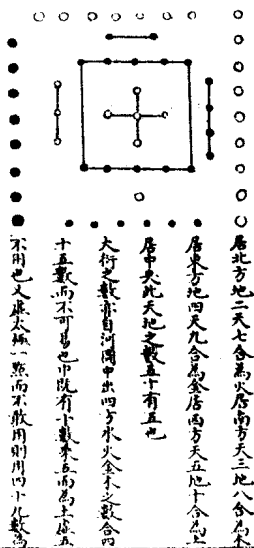 居北方地二天七合為火居南方天三地八合為木
居東方地四天九合為金居西方天五地十合為土
居中央此天地之數五十有五也
大衍之數亦自河圖中出四方水火金木之數合四
十五數而不可易也中既有十數乘五而為土虛五
不用也又虛太極一點而不敢用則用四十九數為